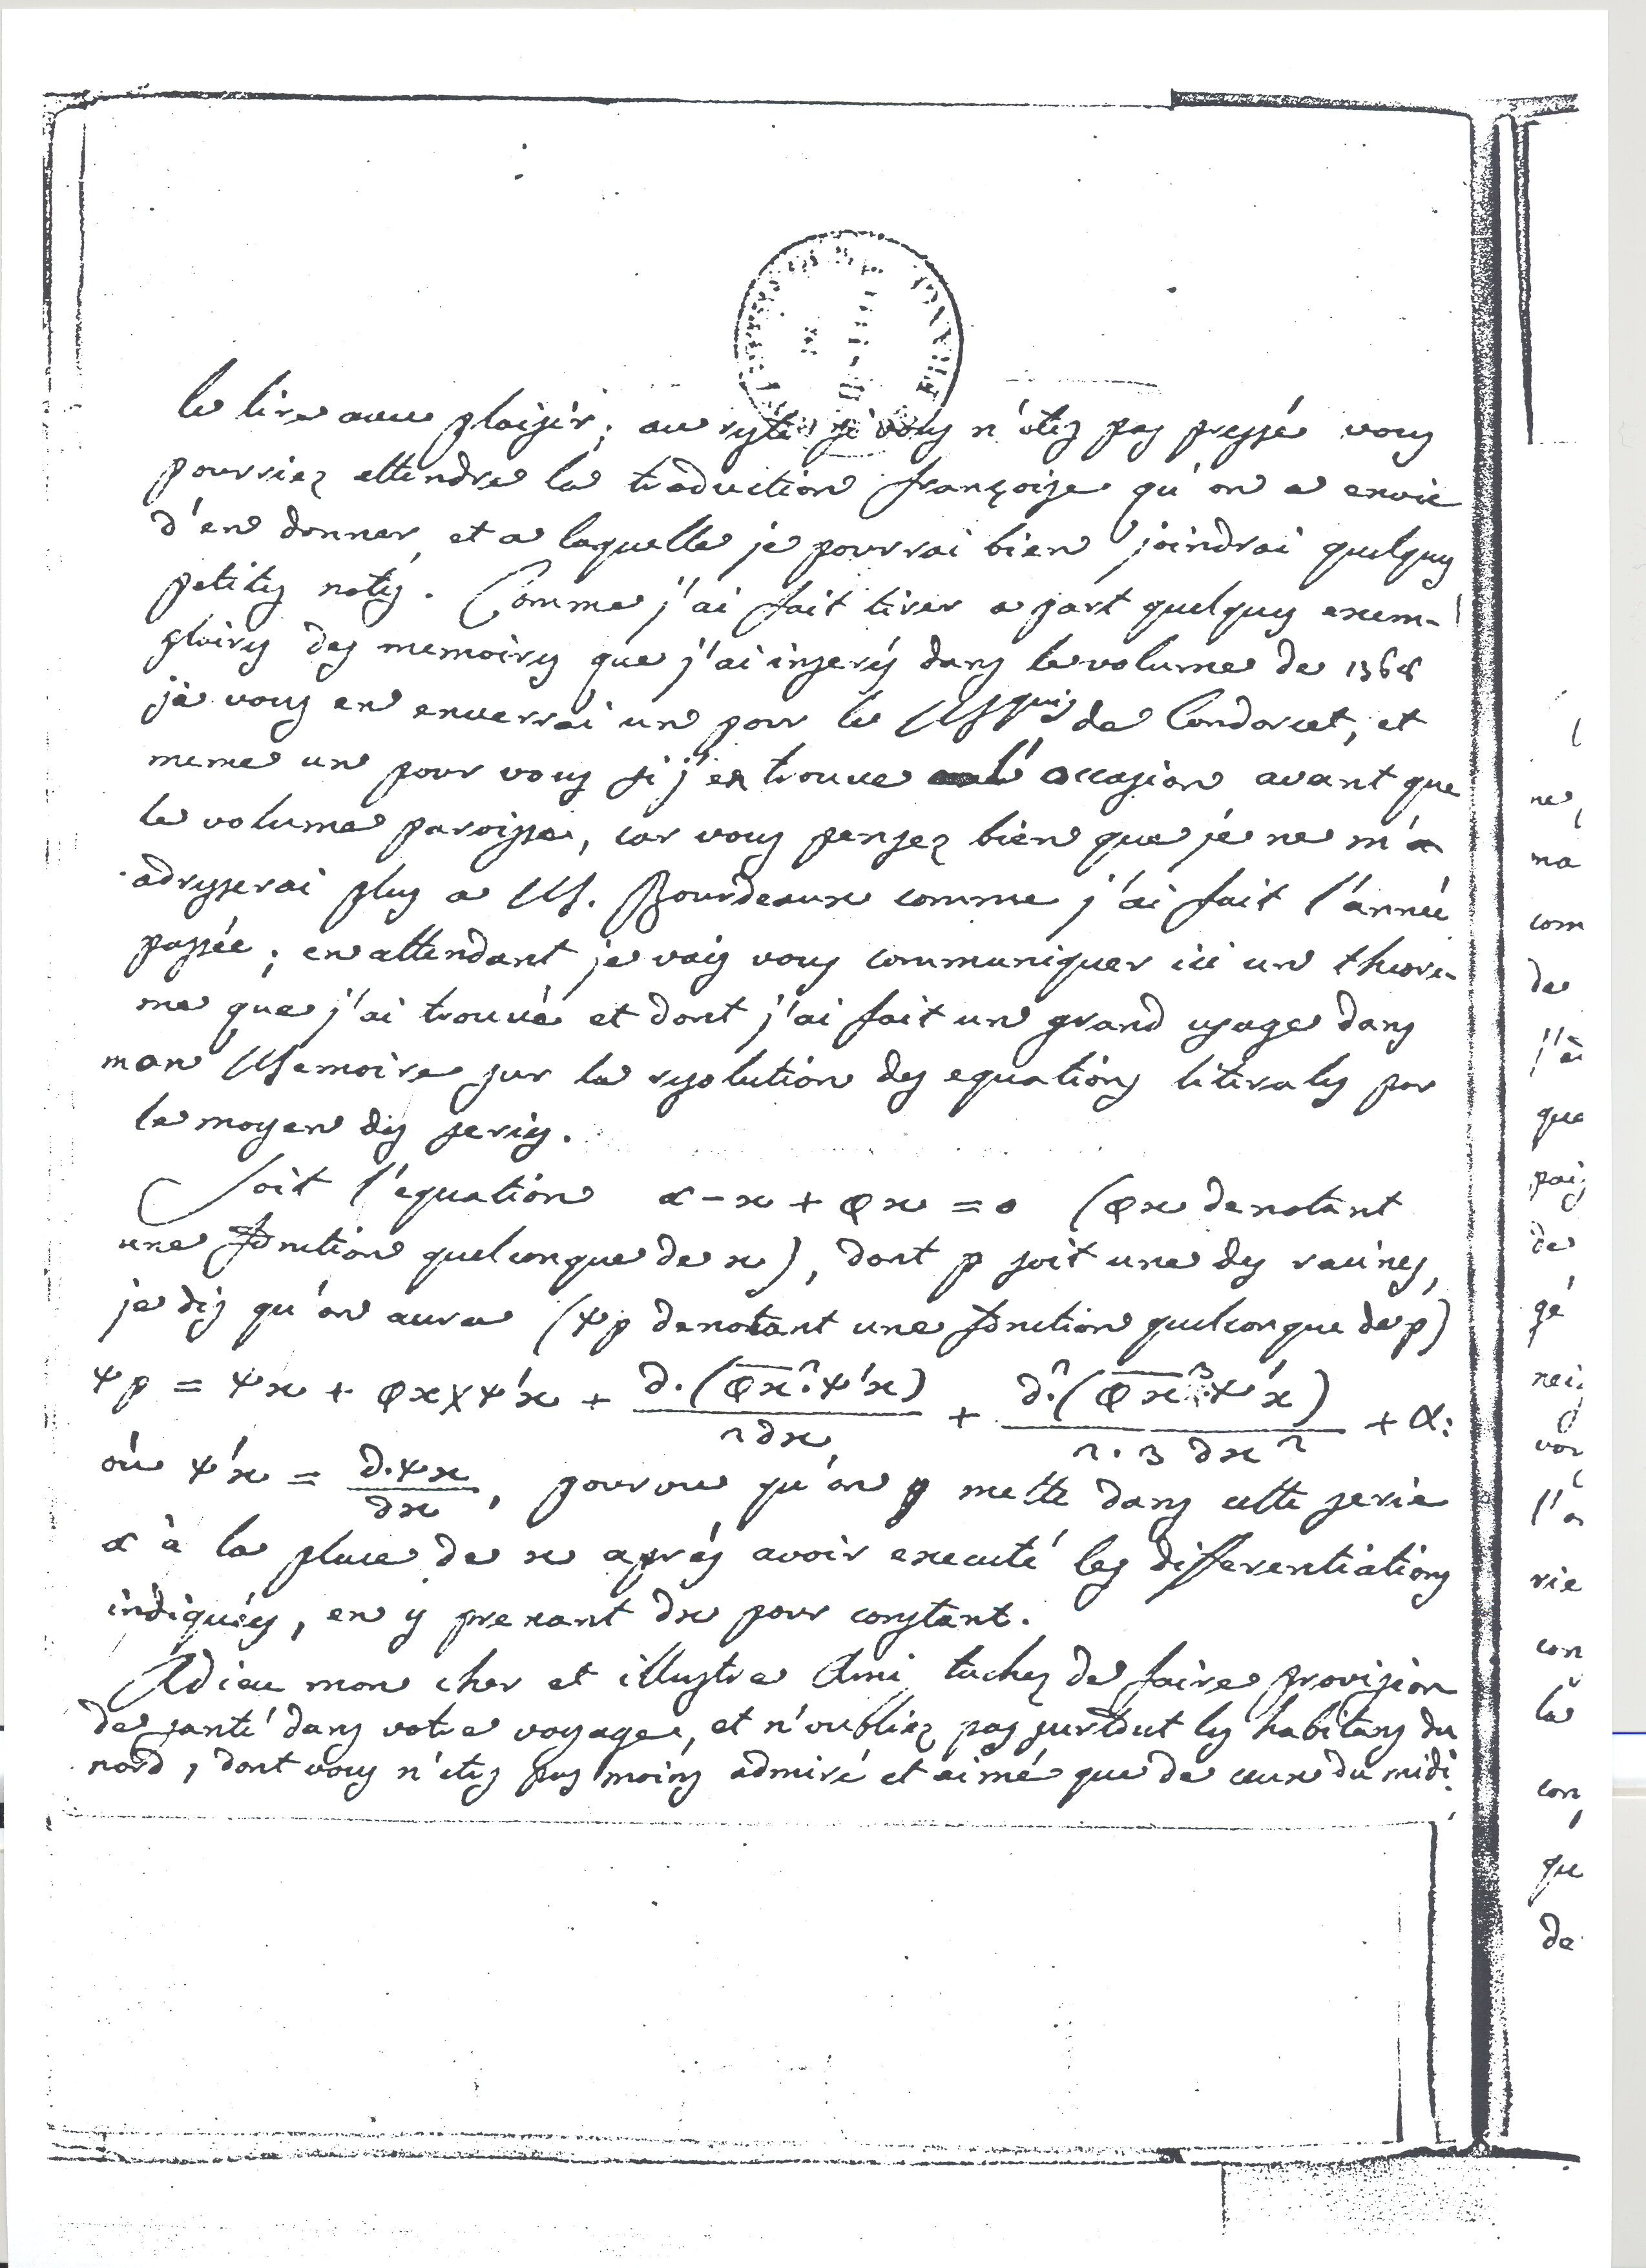 le lire avec plaisir; au reste si vous n'étes pas pressé vous
pourriez attendre la traduction françoise qu'on a envie
d'en donner, et a laquelle je pourrai bien joindrai quelques
petites notes. Comme j'ai fait tirer a part quelques exem-
plaires des memoires que j'ai inserés dans le volume de 1768
je vous en enverrai un pour le M^quis de Condorcet, et
meme un pour vous si j'en trouve l'occasion avant que
le volume paroisse, car vous pensez bien que je ne m'a
adresserai plus a M. Bourdeaux comme j'ai fait l'année
passée; en attendant je vais vous communiquer ici un theore-
me que j'ai trouvé et dont j'ai fait un grand usage dans
mon Memoire sur la resolution des equations literales par
le moyen des series.
Soit l'equation α − x + φx = 0 (φx denotant
une fonction quelconque de x), dont p soit une des racines,
je dis qu'on aura (ψp denotant une fonction quelconque de p)
ψp = ψx + φx × ψ'x + d.(φx^2.ψ'x) / 2dx + d^2.(φx^3.ψ'x) / 2.3 dx^2 + &c:
où ψ'x = d.ψx / dx, pourvu qu'on mette dans cette serie
α à la place de x aprés avoir executé les differentiations
indiquées, en y prenant dx pour constant.
Adieu mon cher et illustre Ami, tachez de faire provision
de santé dans votre voyage, et n'oubliez pas surtout les habitans du
nord, dont vous n'étes pas moins admiré et aimé que de ceux du midi.
ne
na
com
de
j'ai
que
pais
de
gé
nei
vou
l'a
rie
con
la
con
que
de